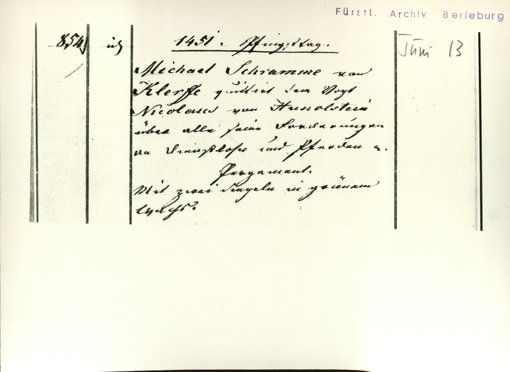 Fürstl. Archiv Berleburg
854
1451. Pfingsttag.
Juni 13
Michael Schramme von
Klerffe quittirt dem Vogt
Nicolaus von Hunolstein
über alle seine Forderungen
an Dienstlohn und Pferden
Pergament.
Mit zwei Siegeln in grünem
Wachs.